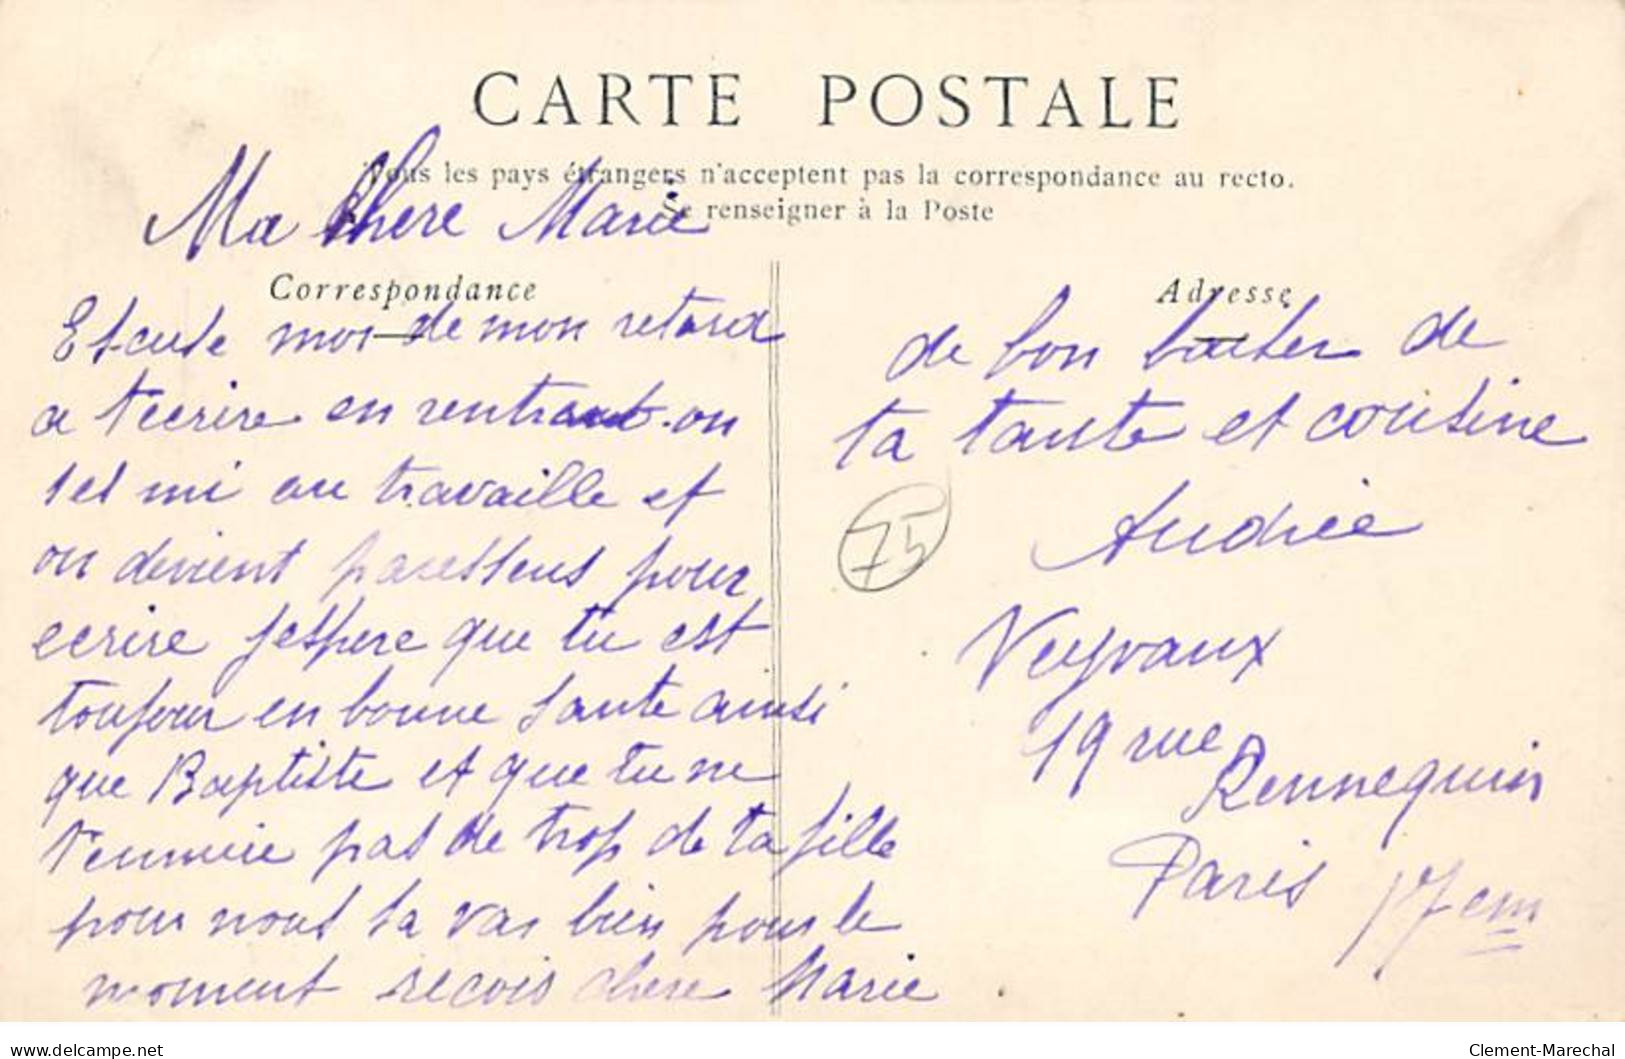 CARTE POSTALE
Tous les pays étrangers n'acceptent pas la correspondance au recto.
Se renseigner à la Poste
Ma chere Marie
Correspondance
Excuse moi de mon retard
a t'ecrire en rentrant on
ses mi au travaille et
on devient paresseus pour
ecrire j'espere que tu est
toujour en bonne sante ainsi
que Baptiste et que tu ne
t'ennuie pas de trop de ta fille
pour nous sa vas bien pour le
moment recois chere Marie
Adresse
de bon baiser de
ta tante et cousine
Andrée
75
Veyvaux
19 rue
Rennequin
Paris 17em
Clement-Marechal
delcampe.net